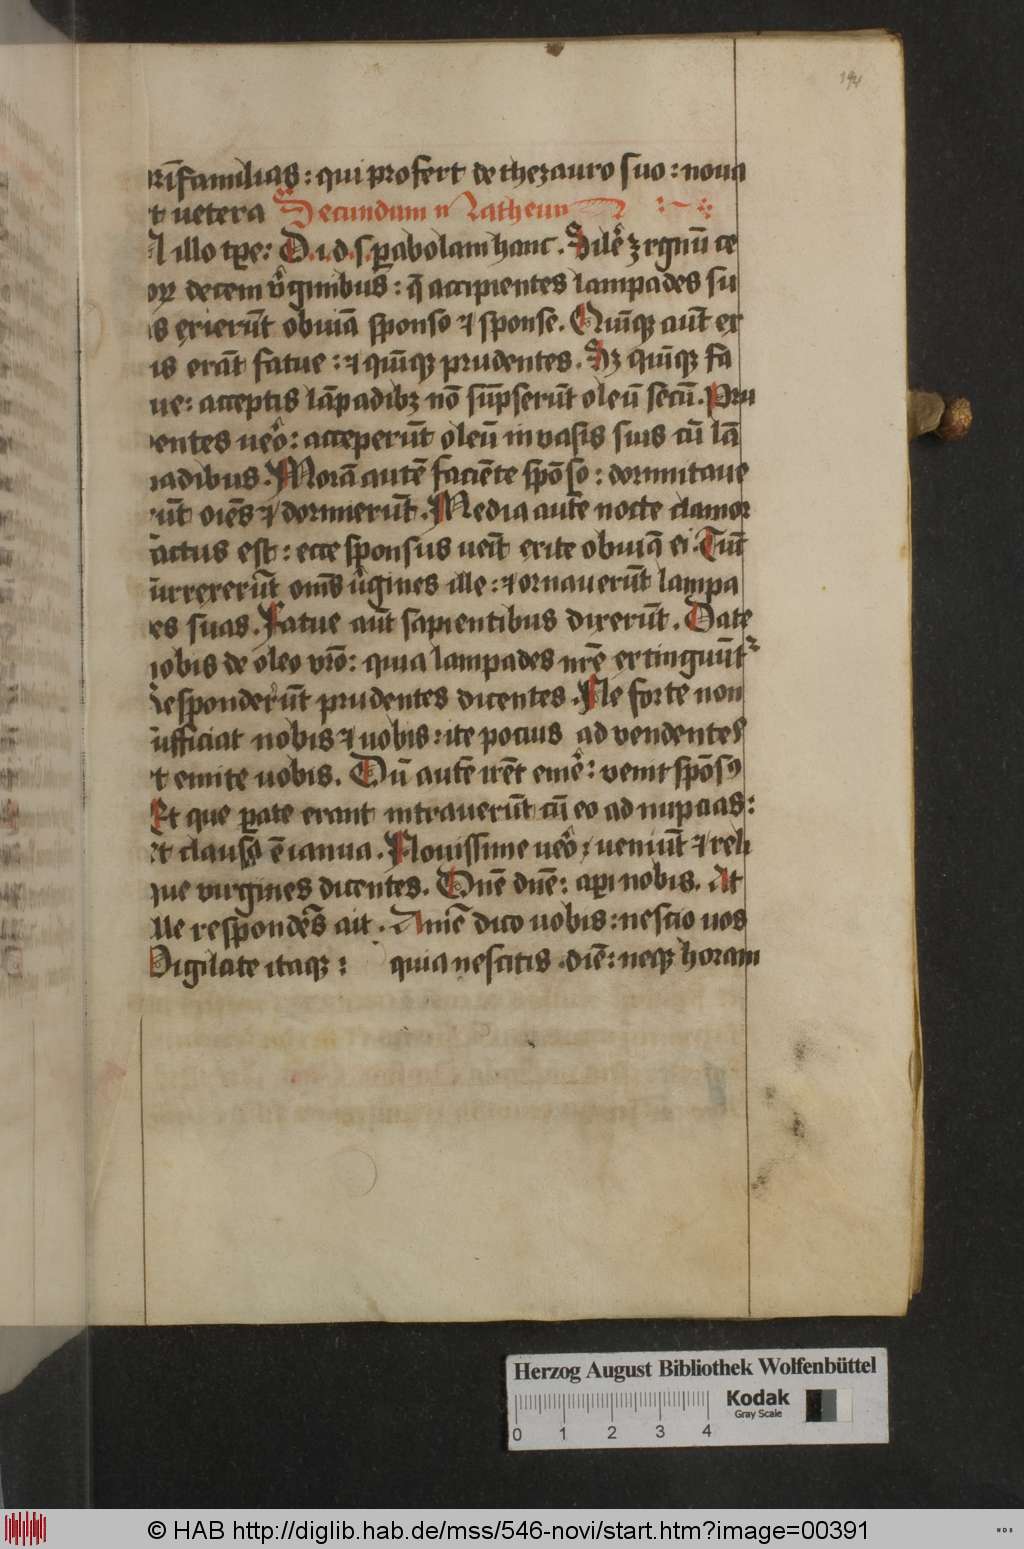 194
rīfamilias: qui profert de thezauro suo: noua
t uetera Secundum Matheum
illo tꝑe: D.i.d.s. ꝑabolam hanc. Silē ꝫ rgnū ce
oꝝ decem v̓ginibus: q̄ accipientes lampades su
s exierūt obuiā sponso ⁊ sponse. Quīqꝫ aūt ex
is erāt fatue: ⁊ quīqꝫ prudentes. Sꝫ quīqꝫ fa
ue: acceptis lāpadibꝫ nō sūpserūt oleū secū. Pru
entes ueo̓: acceperūt oleū in vasis suis cū lā
adibus. Morā autē faciēte spōso: dormitaue
ūt oīes ⁊ dormierūt. Media autē nocte clamor
actus est: ecce sponsus ueīt exite obuiā ei. Tūc
urrexerūt oms v̓gines ille: ⁊ ornauerūt lampa
es suas. Fatue aūt sapientibus dixerūt. Date
obis de oleo vrō: quia lampades nrē extinguūt᷑
esponderūt prudentes dicentes. Ne forte non
ufficiat nobis ⁊ uobis: ite pocius ad vendentes
t emite uobis. Dū autē irēt emē: venit spōsꝰ
Et que ꝑate erant intrauerūt cū eo ad nupcias:
et clausa ē ianua. Nouissime ueo̓: ueniūt ⁊ reli
que virgines dicentes. Dnē dnē: aꝑi nobis. At
lle respondēs ait. Amē dico uobis: nescio uos
Vigilate itaqꝫ: quia nescitis diē: neqꝫ horam
Herzog August Bibliothek Wolfenbüttel
Kodak
Gray Scale
0 1 2 3 4
© HAB http://diglib.hab.de/mss/546-novi/start.htm?image=00391